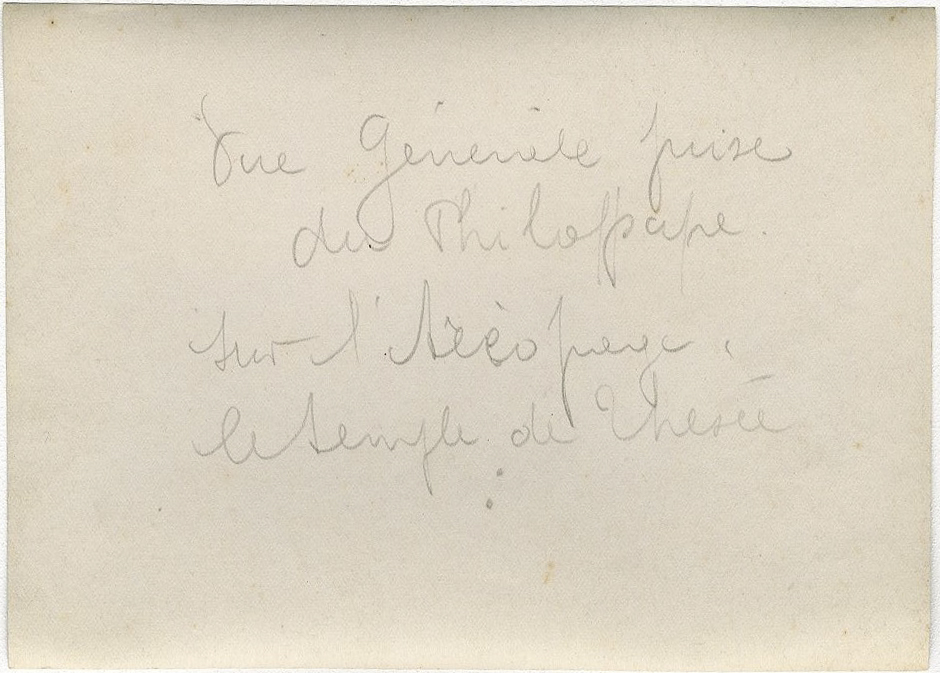 Vue Générale prise
du Philoppape.
sur l'Aréopage,
le temple de Thesée